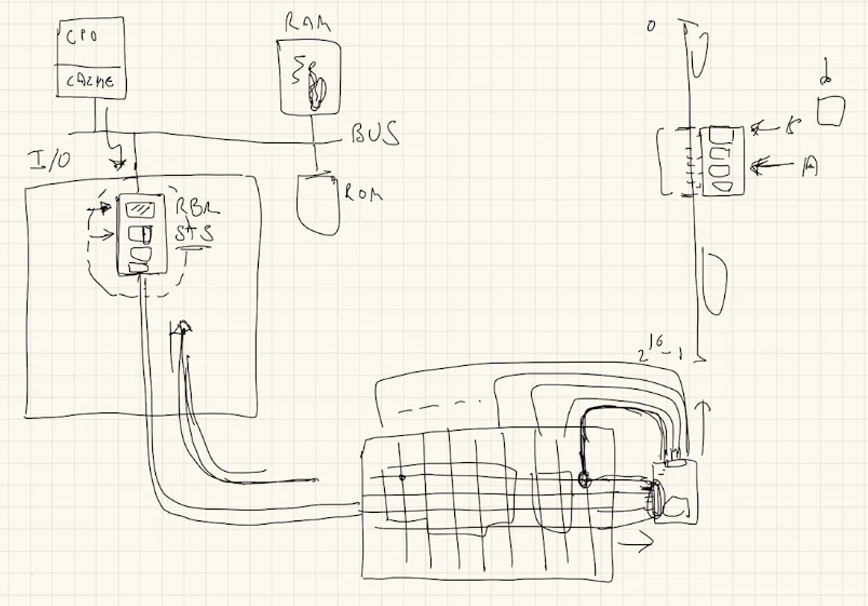 CPU
CACHE
RAM
BUS
I/O
ROM
RBR
STS
0
A
2^16-1